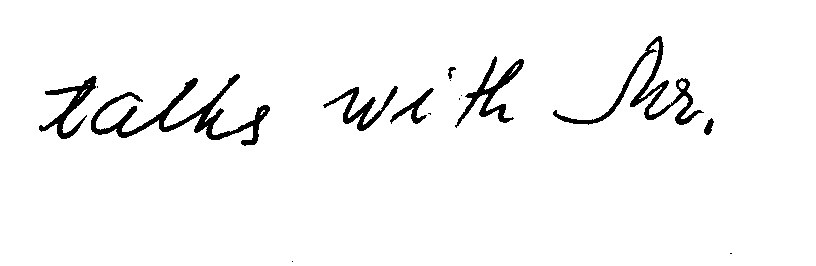 talks with Mr.